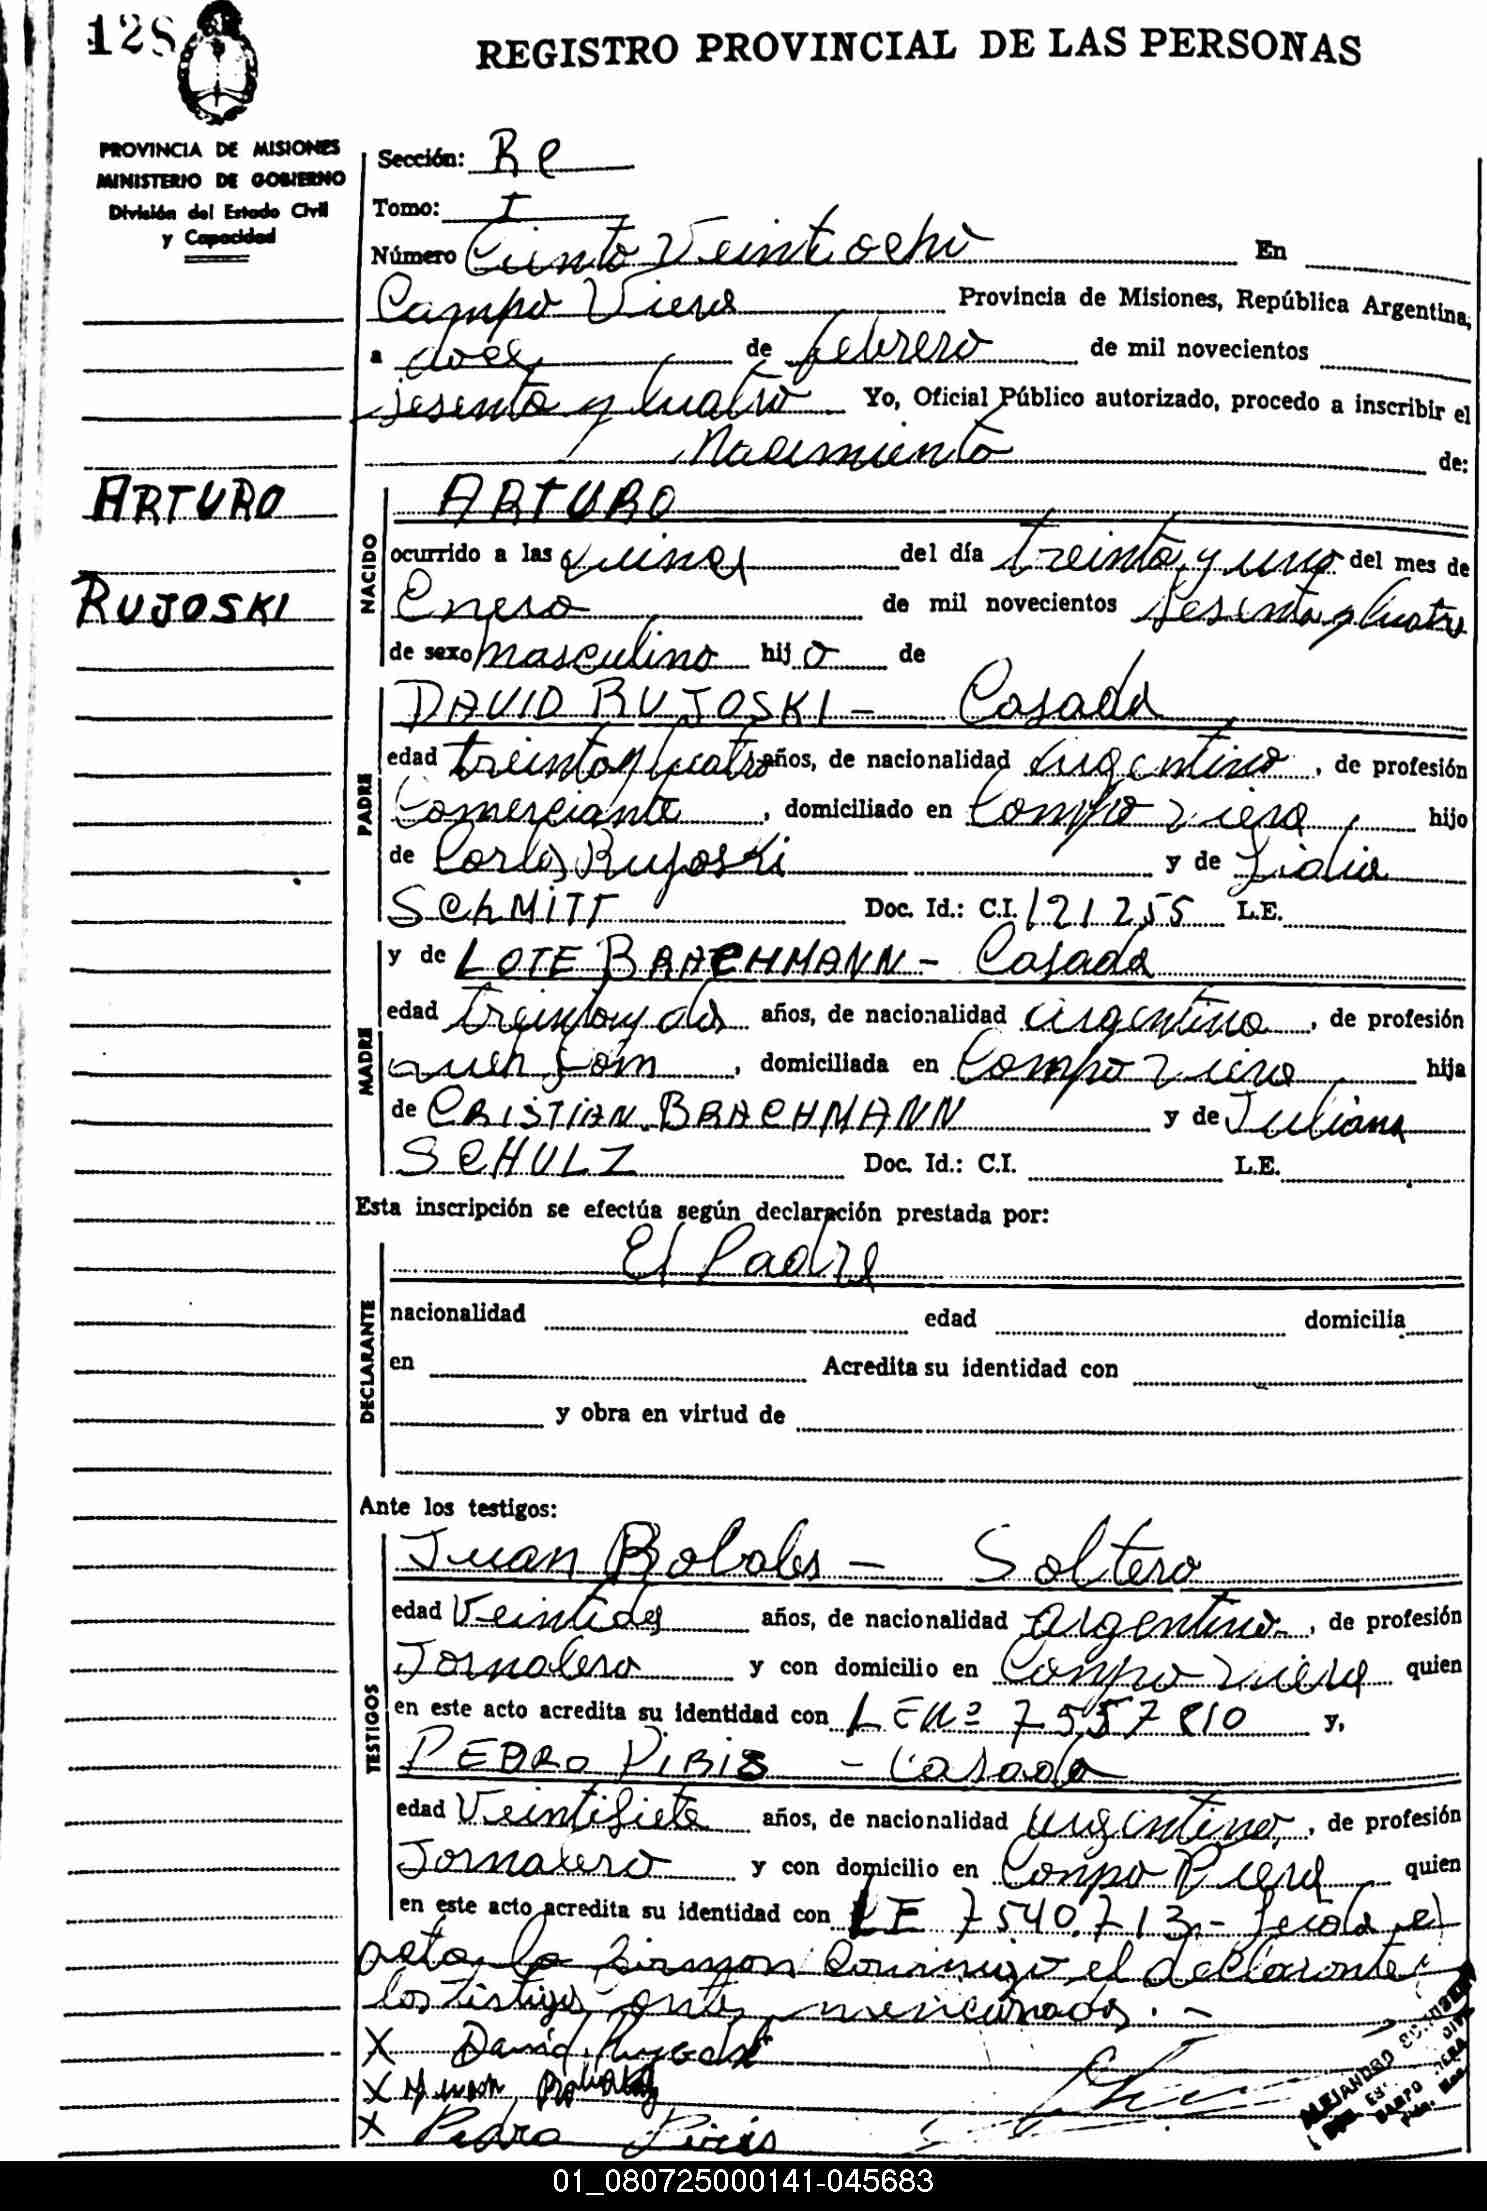 128
REGISTRO PROVINCIAL DE LAS PERSONAS
PROVINCIA DE MISIONES
MINISTERIO DE GOBIERNO
División del Estado Civil
y Capacidad
Sección:
Tomo: I
Número Ciento Veintiocho En
Campo Viera Provincia de Misiones, República Argentina,
a doce de febrero de mil novecientos
sesenta y cuatro Yo, Oficial Público autorizado, procedo a inscribir el
Nacimiento de:
ARTURO
RUJOSKI
NACIDO
ARTURO
ocurrido a las del día treinta y uno del mes de
Enero de mil novecientos sesenta y cuatro
de sexo masculino hijo de
PADRE
DAVID RUJOSKI - Casado
edad treinta y cuatro años, de nacionalidad argentino, de profesión
Comerciante, domiciliado en Campo Viera, hijo
de Carlos Rujoski y de Lidia
SCHMITT Doc. Id.: C.I. 121255 L.E.
MADRE
y de LOTE BRACHMANN - Casada
edad treinta y dos años, de nacionalidad argentina, de profesión
queh. dom, domiciliada en Campo Viera hija
de CRISTIAN BRACHMANN y de Juliana
SCHULZ Doc. Id.: C.I. L.E.
Esta inscripción se efectúa según declaración prestada por:
DECLARANTE
El Padre
nacionalidad edad domicilia
en Acredita su identidad con
y obra en virtud de
Ante los testigos:
TESTIGOS
Juan - Soltero
edad Veintidos años, de nacionalidad argentino, de profesión
Jornalero y con domicilio en Campo Viera quien
en este acto acredita su identidad con LE Nº 7557810 y,
PEDRO PIRIS - Casado
edad Veintisiete años, de nacionalidad argentino, de profesión
Jornalero y con domicilio en Campo Viera quien
en este acto acredita su identidad con LE 7540.713.- Leida el
acta, la firman conmigo el declarante y
los testigos antes mencionados. -
X David
X Juan
X Pedro Piris
ALEJANDRO
01_080725000141-045683